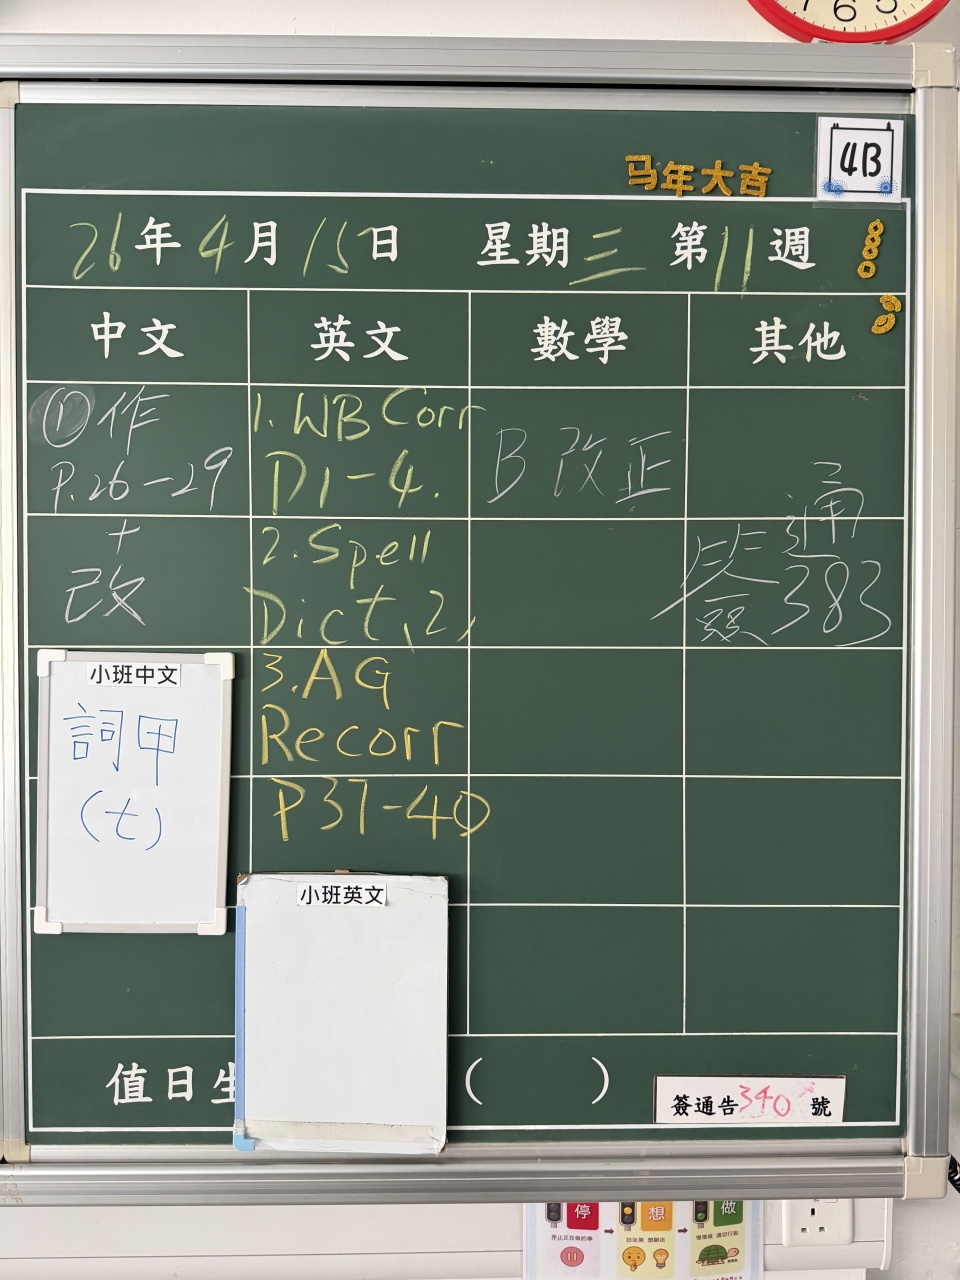 6 5
4B
马年大吉
26年4月15日 星期三 第11週
中文 英文 數學 其他
①作
P.26-29
+
改
1. WB Corr
D1-4.
2. Spell
Dict, 2,
3. AG
Recorr
P37-40
B 改正
簽通
383
小班中文
詞甲
(七)
小班英文
值日生
( )
簽通告340號
停 想 做
停止正在做的事